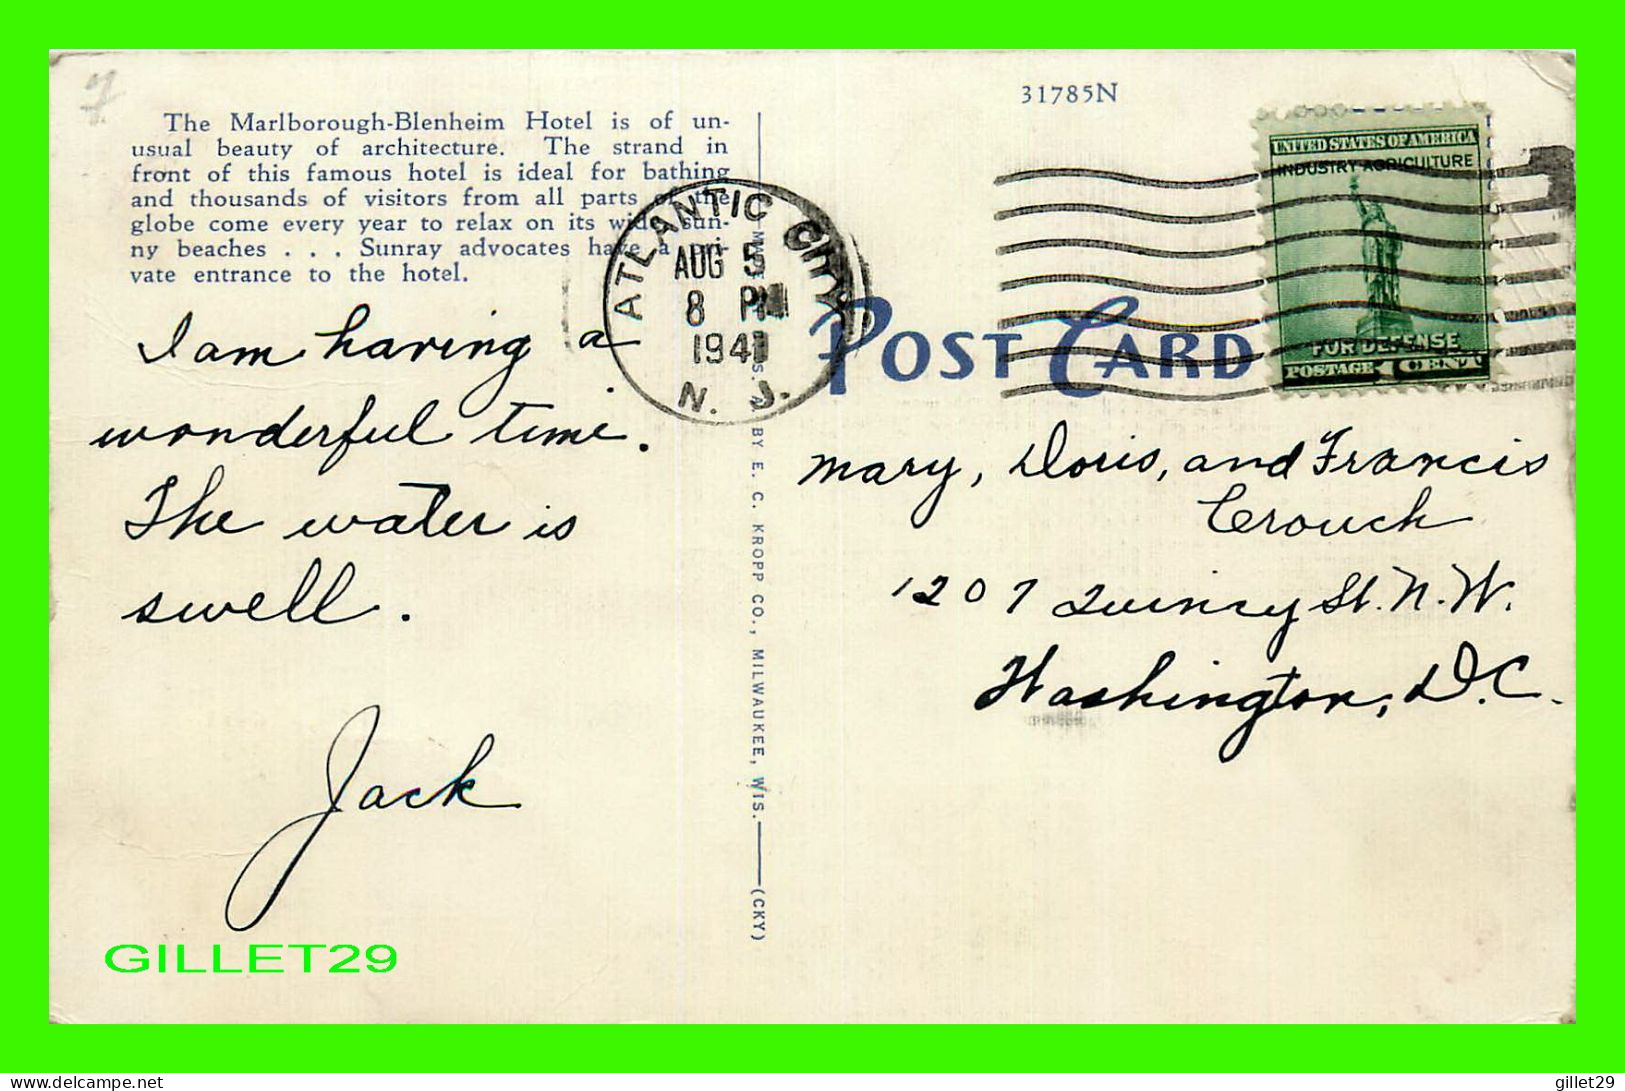 7
The Marlborough-Blenheim Hotel is of un-
usual beauty of architecture. The strand in
front of this famous hotel is ideal for bathing
and thousands of visitors from all parts of the
globe come every year to relax on its wide sun-
ny beaches . . . Sunray advocates have a pri-
vate entrance to the hotel.
I am having a
wonderful time.
The water is
swell.
Jack
GILLET29
ATLANTIC CITY
AUG 5
8 PM
1941
N. J.
BY E. C. KROPP CO., MILWAUKEE, WIS.
(CKY)
31785N
UNITED STATES OF AMERICA
INDUSTRY AGRICULTURE
FOR DEFENSE
POSTAGE 1 CENT
POST CARD
Mary, Doris, and Francis
Crouch
1207 Quincy St. N.W.
Washington, D.C.
www.delcampe.net
gillet29